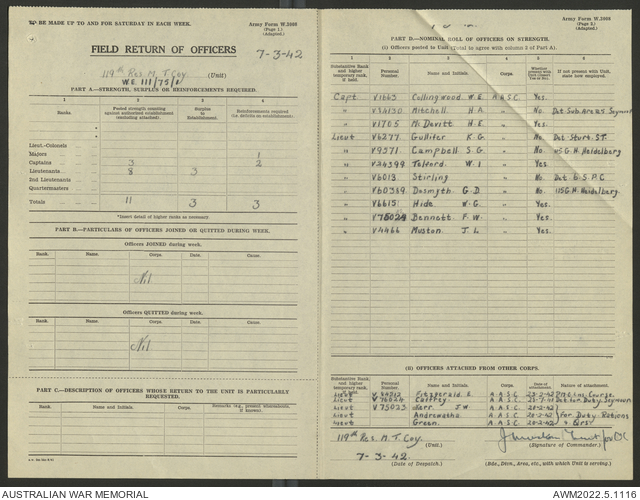 TO BE MADE UP TO AND FOR SATURDAY IN EACH WEEK.
Army Form W.3008
(Page 1.)
(Adapted.)
FIELD RETURN OF OFFICERS
7-3-42
119th Res. M.T. Coy. (Unit)
W.E. 111/75/1
PART A.—STRENGTH, SURPLUS OR REINFORCEMENTS REQUIRED.
1 2 3 4
Ranks. Posted strength counting against authorised establishment (excluding attached). Surplus to Establishment. Reinforcements required (i.e. deficits on establishment).
Lieut.-Colonels
Majors 1
Captains 3 2
Lieutenants 8 3
2nd Lieutenants
Quartermasters
Totals 11 3 3
*Insert detail of higher ranks as necessary
PART B.—PARTICULARS OF OFFICERS JOINED OR QUITTED DURING WEEK.
Officers JOINED during week.
Rank. Name. Corps. Date. Cause.
Nil
Officers QUITTED during week.
Rank. Name. Corps. Date. Cause.
Nil
PART C.—DESCRIPTION OF OFFICERS WHOSE RETURN TO THE UNIT IS PARTICULARLY REQUESTED.
Rank. Name. Corps.
Army Form W.3008
(Page 2.)
(Adapted.)
PART D.—NOMINAL ROLL OF OFFICERS ON STRENGTH.
(i) Officers posted to Unit (Total to agree with column 2 of Part A).
1 2 3 4 5 6
Substantive Rank and higher temporary rank, if held. Personal Number. Name and Initials. Corps. If not present with Unit, state how employed.
Capt V1663 Collingwood W.E. A.A.S.C. Yes.
" V34130 Mitchell H.A. " No. Det Sub Areas Seymour
" V1705 McDevitt H.E. " Yes.
Lieut V6277 Gulliter K.G. " No. Det. Sturt. ST.
" V9571 Campbell S.G. " No. 115 G.H. Heidelberg
" V24399 Telford W.I. " Yes.
" V6013 Stirling " No. Det 6 S.P.C
" V60369 Dosmyth G.D " No. 115 G.H. Heidelberg.
" V6615 Hide W.G. " Yes.
" V75024 Bennett F.W. " Yes.
" V4466 Muston J.L. " Yes.
(ii) OFFICERS ATTACHED FROM OTHER CORPS.
Substantive Rank and higher temporary rank, if held. Personal Number. Name and Initials. Corps. Date of attachment. Nature of attachment.
Lieut Fitzgerald A.A.S.C. Course.
Lieut A.A.S.C. Det for Duty Seymour
Lieut V75023 Kerr J.W. A.A.S.C. 28-2-42
Lieut A.A.S.C. 28-2-42 for Duty Rations
Lieut Green. A.A.S.C. 28-2-42
119th Res. M.T. Coy. (Unit.)
(Signature of Commander.)
7-3-42.
(Date of Despatch.)
(Bde., Divn., Area, etc., with which Unit is serving.)
AUSTRALIAN WAR MEMORIAL
AWM2022.5.1116